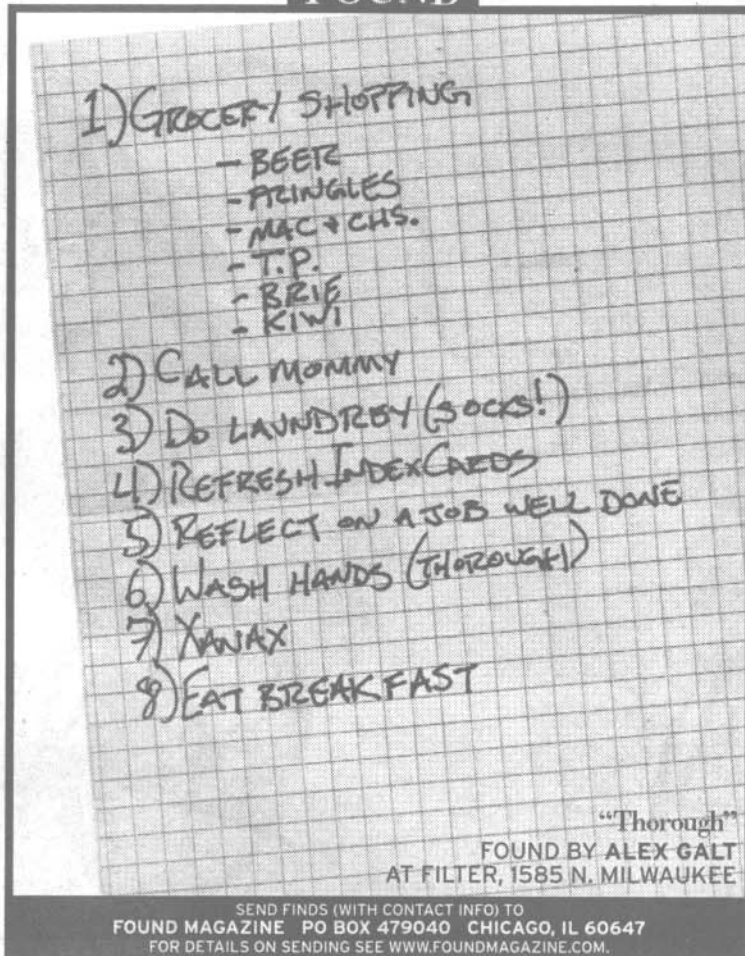 FOUND
1) GROCERY SHOPPING
- BEER
- PRINGLES
- MAC + CHS.
- T.P.
- BRIE
- KIWI
2) CALL MOMMY
3) DO LAUNDREY (SOCKS!)
4) REFRESH INDEX CARDS
5) REFLECT ON A JOB WELL DONE
6) WASH HANDS (THOROUGH)
7) XANAX
8) EAT BREAKFAST
“Thorough”
FOUND BY ALEX GALT
AT FILTER, 1585 N. MILWAUKEE
SEND FINDS (WITH CONTACT INFO) TO
FOUND MAGAZINE PO BOX 479040 CHICAGO, IL 60647
FOR DETAILS ON SENDING SEE WWW.FOUNDMAGAZINE.COM.